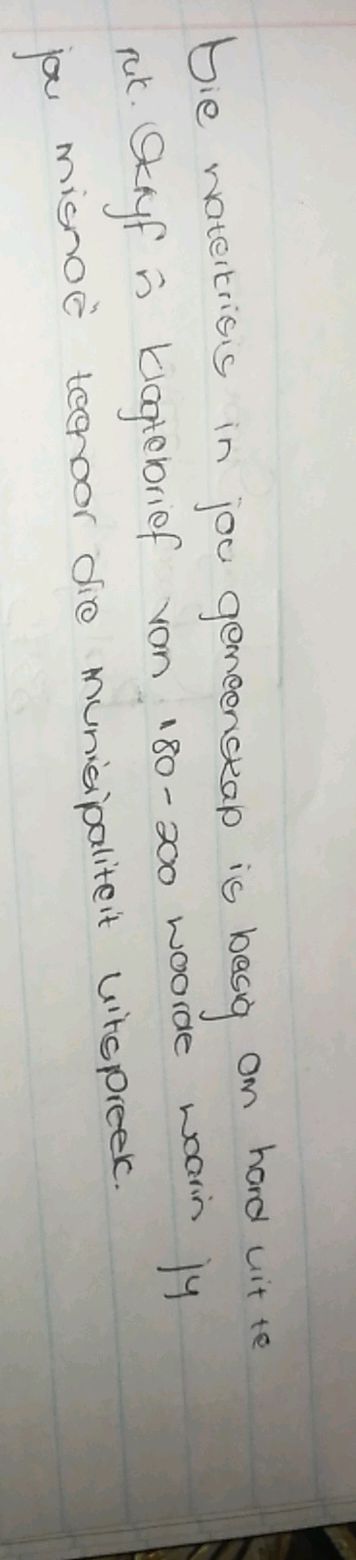 Die waterkrisis in jou gemeenskap is besig om hand uit te
ruk. Skryf 'n klagtebrief van 180-200 woorde waarin jy
jou misnoë teenoor die munisipaliteit uitspreek.